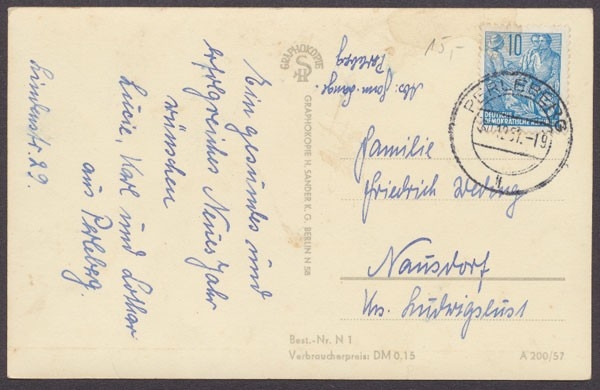 Ein gesundes und
erfolgreiches Neues Jahr
wünschen
Lucie, Karl und Lothar
aus Perleberg.
Lindenstr. 29.
GRAPHOKOPIE
GRAPHOKOPIE H. SANDER K. G. BERLIN N 58
Abs.
Perleberg
15,-
10
DEUTSCHE
DEMOKRATISCHE
PERLEBERG
-19
Familie
Friedrich
Nausdorf
Kr. Ludwigslust
Best.-Nr. N 1
Verbraucherpreis: DM 0,15
A 200/57